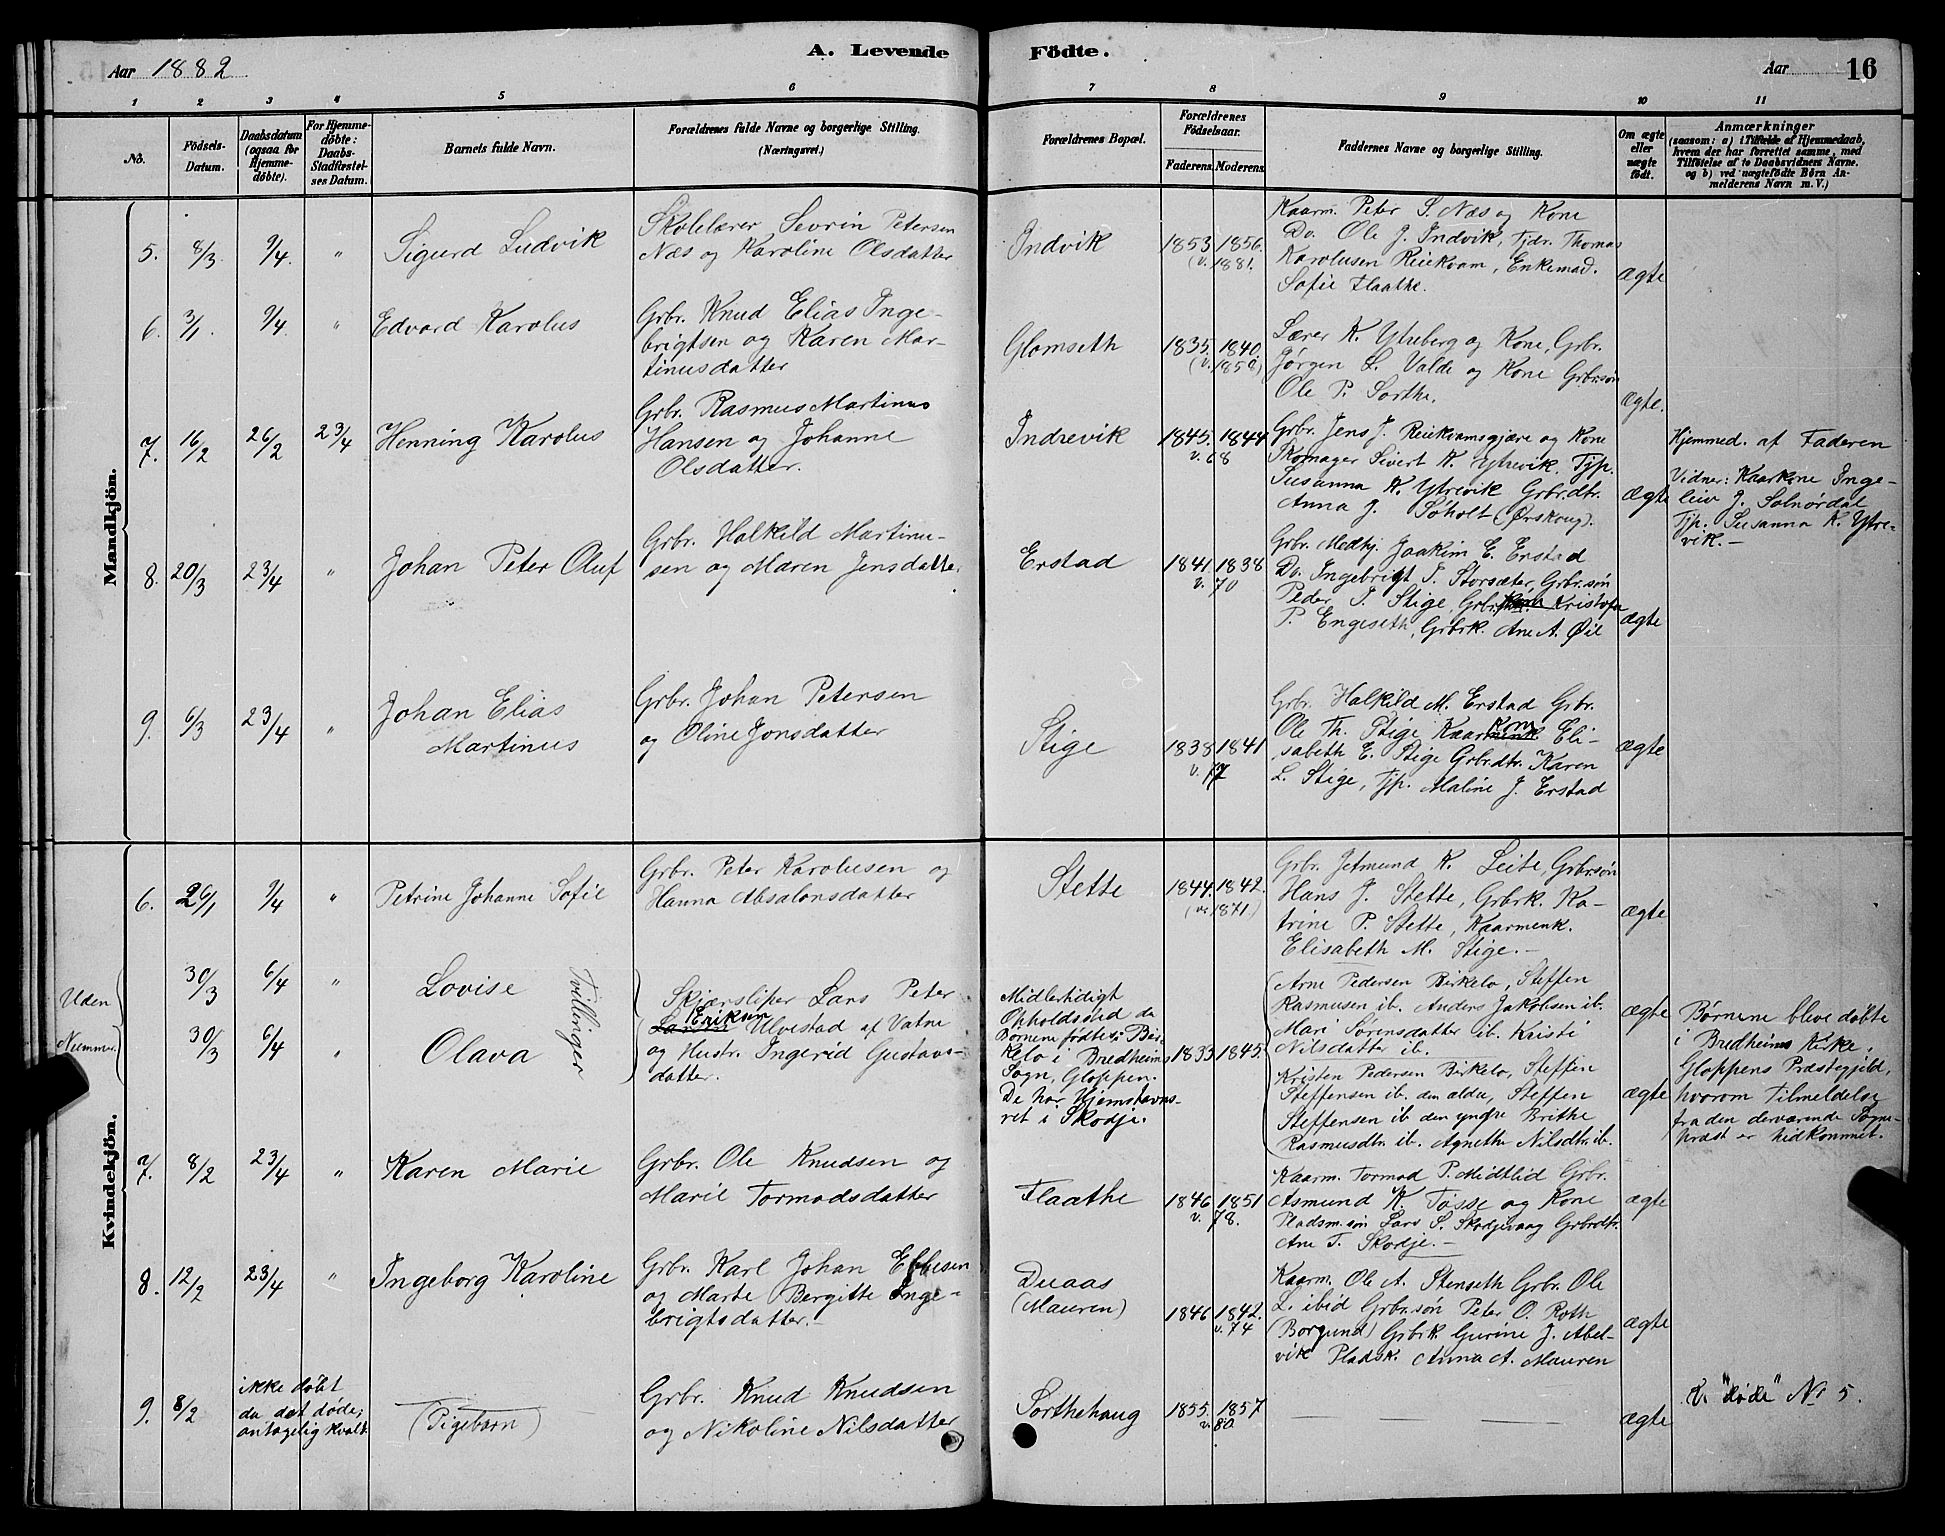 Aar 1882
A. Levende Födte.
Aar 16
1 2 3 4 5 6 7 8 9 10 11
No.
Födsels-
Datum.
Daabsdatum
(ogsaa for
Hjemme-
døbte).
For Hjemme-
døbte:
Daabs-
Stadfæstel-
ses Datum.
Barnets fulde Navn.
Forældrenes fulde Navne og borgerlige Stilling.
(Næringsvei.)
Forældrenes Bopæl.
Forældrenes
Födselsaar.
Faderens. Moderens.
Faddernes Navne og borgerlige Stilling.
Om ægte
eller
uægte
födt.
Anmærkninger
(saasom: a) i Tilfælde af Hjemmedaab,
hvem der har forrettet samme, med
Tilføielse af to Daabsvidners Navne,
og b) ved uægtefödte Börn An-
melderens Navn m. V.)
Mandkjön.
5. 8/3. 9/4. "
Sigurd Ludvik
Skolelærer Sevrin Petersen
Næs og Karoline Olsdatter
Indvik
1853 1856.
(v. 1881.
Kaarm. Peter S. Næs og Kone
Do. Ole J. Indvik, Tjdr. Thomas
Karolusen Reiekvam, Enkemad.
Sofie Flaathe.
ægte
6. 3/1. 9/4 "
Edvard Karolus
Grbr. Knud Elias Inge-
brigtsen og Karen Mar-
tinusdatter
Glomseth
1835. 1840.
(v. 1858)
Lærer K. Ytreberg og Kone, Grbr.
Jørgen L. Valde og Kone Grbrsøn
Ole P. Sorthe.
ægte.
7. 16/2 26/2 23/4
Henning Karolus
Grbr. Rasmus Martinus
Hansen og Johanne
Olsdatter.
Indrevik
1845. 1844
v. 68
Grbr. Jens J. Reiekvamsgjære og Kone
Skomager Sivert K. Ytrevik, Tjp.
Susanna K. Ytrevik Grbr.dtr.
Anna J. Søholt (Ørskoug).
ægte
Hjemmed. af Faderen
Vidner: Kaarkone Inge-
leiv J. Solnørdal
Tjp. Susanna K. Ytre-
vik.—
8. 20/3 23/4 "
Johan Peter Oluf
Grbr. Halkild Martinu-
sen og Maren Jensdatter
Erstad
1841 1838
v. 70
Grbr. Medhj. Joakim E. Erstad
Do. Ingebrigt J. Storsæter, Grbr.søn
Peder J. Stige, Grbr. Kristofer
P. Engeseth, Grbrk. Ane A. Øie
ægte
9. 6/3 23/4 "
Johan Elias
Martinus
Grbr. Johan Petersen
og Oline Jonsdatter
Stige
1838 1841
v. 77
Grbr. Halkild M. Erstad Grbr.
Ole Th. Stige Kaarkone Eli-
sabeth E. Stige Grbr.dtr. Karen
L. Stige, Tjp. Maline J. Erstad
ægte
Kvindekjön.
6. 26/1 9/4 "
Petrine Johanne Sofie
Grbr. Peter Karolusen og
Hanna Absalonsdatter
Stette
1844. 1842.
(v. 1871.)
Grbr. Jetmund K. Leite, Grbrsøn
Hans J. Stette, Grbrk. Ka-
trine P. Stette, Kaarmenk.
Elisabeth M. Stige.—
ægte
Uden
Nummer.
30/3 6/4 "
Lovise
30/3 6/4 "
Olava
Tvillinger
Skjærsliper Lars Peter
Eriksen Ulvestad af Vatne
og Hustr. Ingerid Gustavs-
datter.
Midlertidigt
Opholdssted da
Børnene fødtes: Bir-
kelo i Bredheims
Sogn, Gloppen.
De har Hjemstavns-
ret i Skodje.
1833 1845.
Arne Pedersen Birkelo, Steffen
Rasmusen ib. Anders Jakobsen ib.
Mari Sørensdatter ib. Kristi
Nilsdatter ib.
ægte
Kristen Pedersen Birkelo, Steffen
Steffensen ib. den ældre, Steffen
Steffensen ib den yngre Brithe
Rasmusdtr. ib. Agnethe Nilsdtr. ib.
ægte
Børnene bleve døbte
i Bredheims Kirke,
Gloppens Præstegjeld,
hvorom Tilmeldelse
fra den derværende Sogne-
præst er hidkommet.
7. 8/2 23/4 "
Karen Marie
Grbr. Ole Knudsen og
Marie Tormodsdatter
Flaathe
1846 1851
v. 78.
Kaarm. Tormod P. Midtlid Grbr.
Asmund K. Tøsse og Kone
Pladsm.søn Lars S. Skodjevaag Grbrdtr.
Ane T. Skodje.—
ægte
8. 12/2 23/4 "
Ingeborg Karoline
Grbr. Karl Johan Ellevsen
og Marte Bergitte Inge-
brigtsdatter.—
Duaas
(Mauren)
1846 1842.
v. 74
Kaarm. Ole A. Stenseth Grbr. Ole
L. ibid Grbr.søn Peter O. Roth
(Borgund) Grbrk Gurine J. Abel-
vik Pladsk. Anna A. Mauren
ægte
9. 8/2
ikke døbt
da det døde;
antagelig kvalt.
(Pigebarn)
Grbr. Knud Knudsen
og Nikoline Nilsdatter
Sorthehaug
1855. 1857
v. 80.
— — —
ægte
V. "døde" No 5.